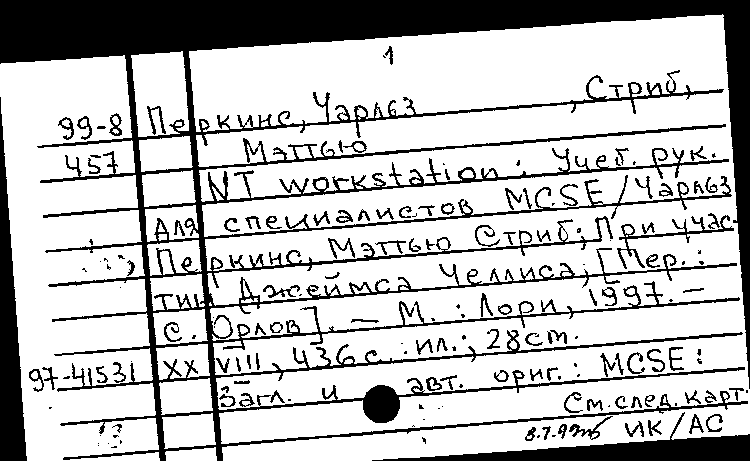 1
99-8 Перкинс, Чарльз , Стриб,
457 Мэттью
NT workstation : Учеб. рук.
для специалистов MCSE / Чарльз
Перкинс, Мэттью Стриб; При учас-
тии Джеймса Челлиса; [Пер.:
С. Орлов]. — М. : Лори, 1997. —
97-41531 XXVIII, 436 с. : ил.; 28 cm.
Загл. и авт. ориг.: MCSE:
См. след. карт.
8.7.99 ИК/АС